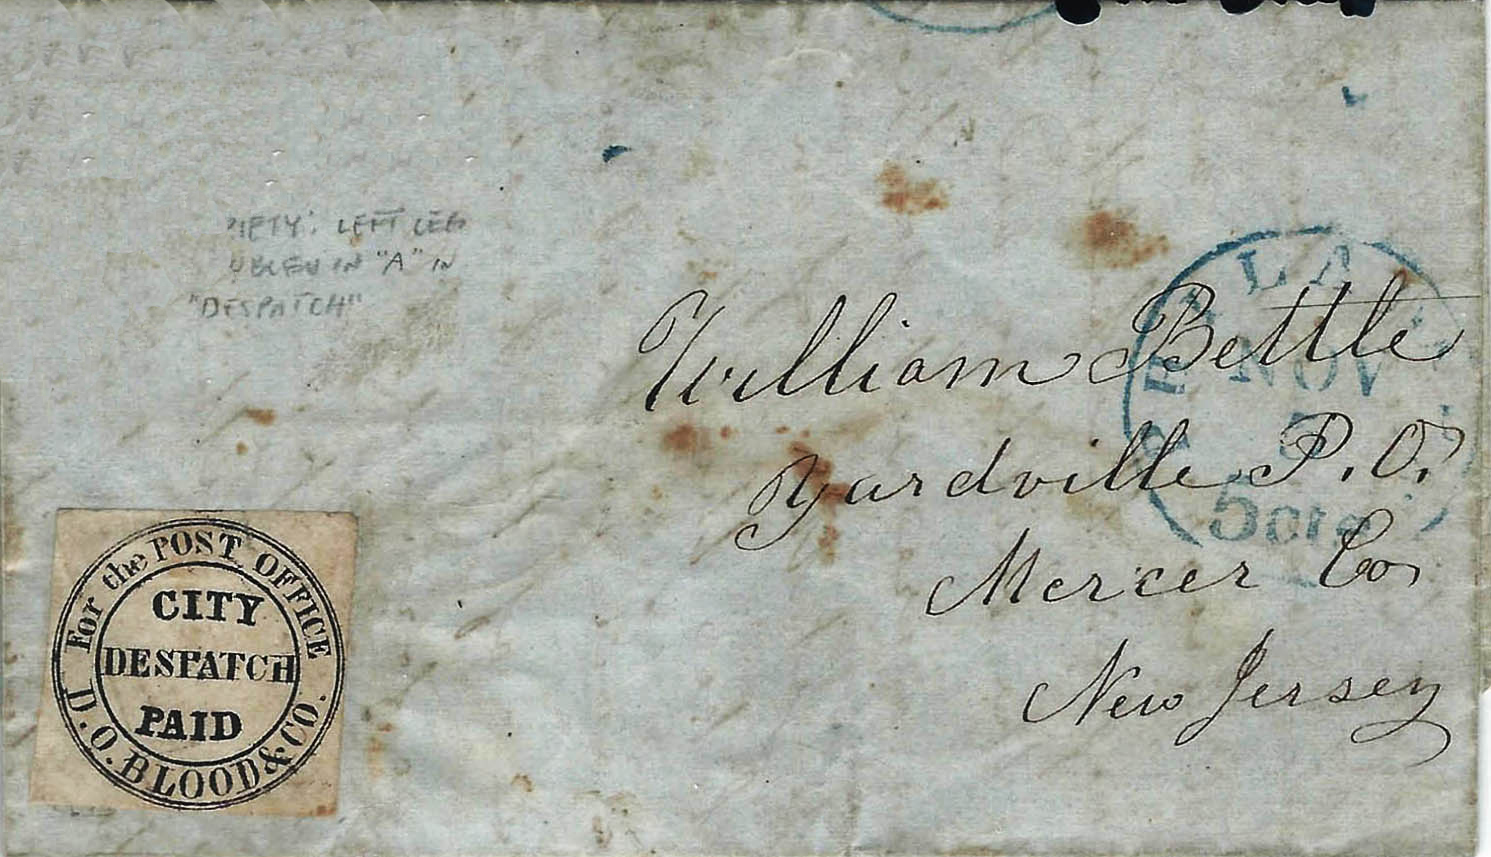 LEFT LEG
IN "A" IN
"DESPATCH"
PHILA
NOV
5
5cts
William Bettle
Yardville P.O.
Mercer Co
New Jersey
For the POST OFFICE
CITY
DESPATCH
PAID
D.O.BLOOD&CO.